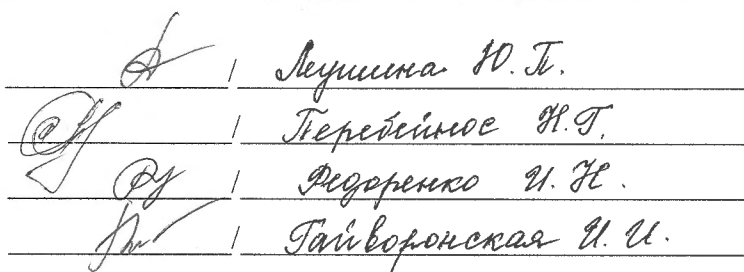 / Леушина Ю. П.
/ Перебейнос Н. Г.
/ Федоренко И. Н.
/ Гайворонская И. И.